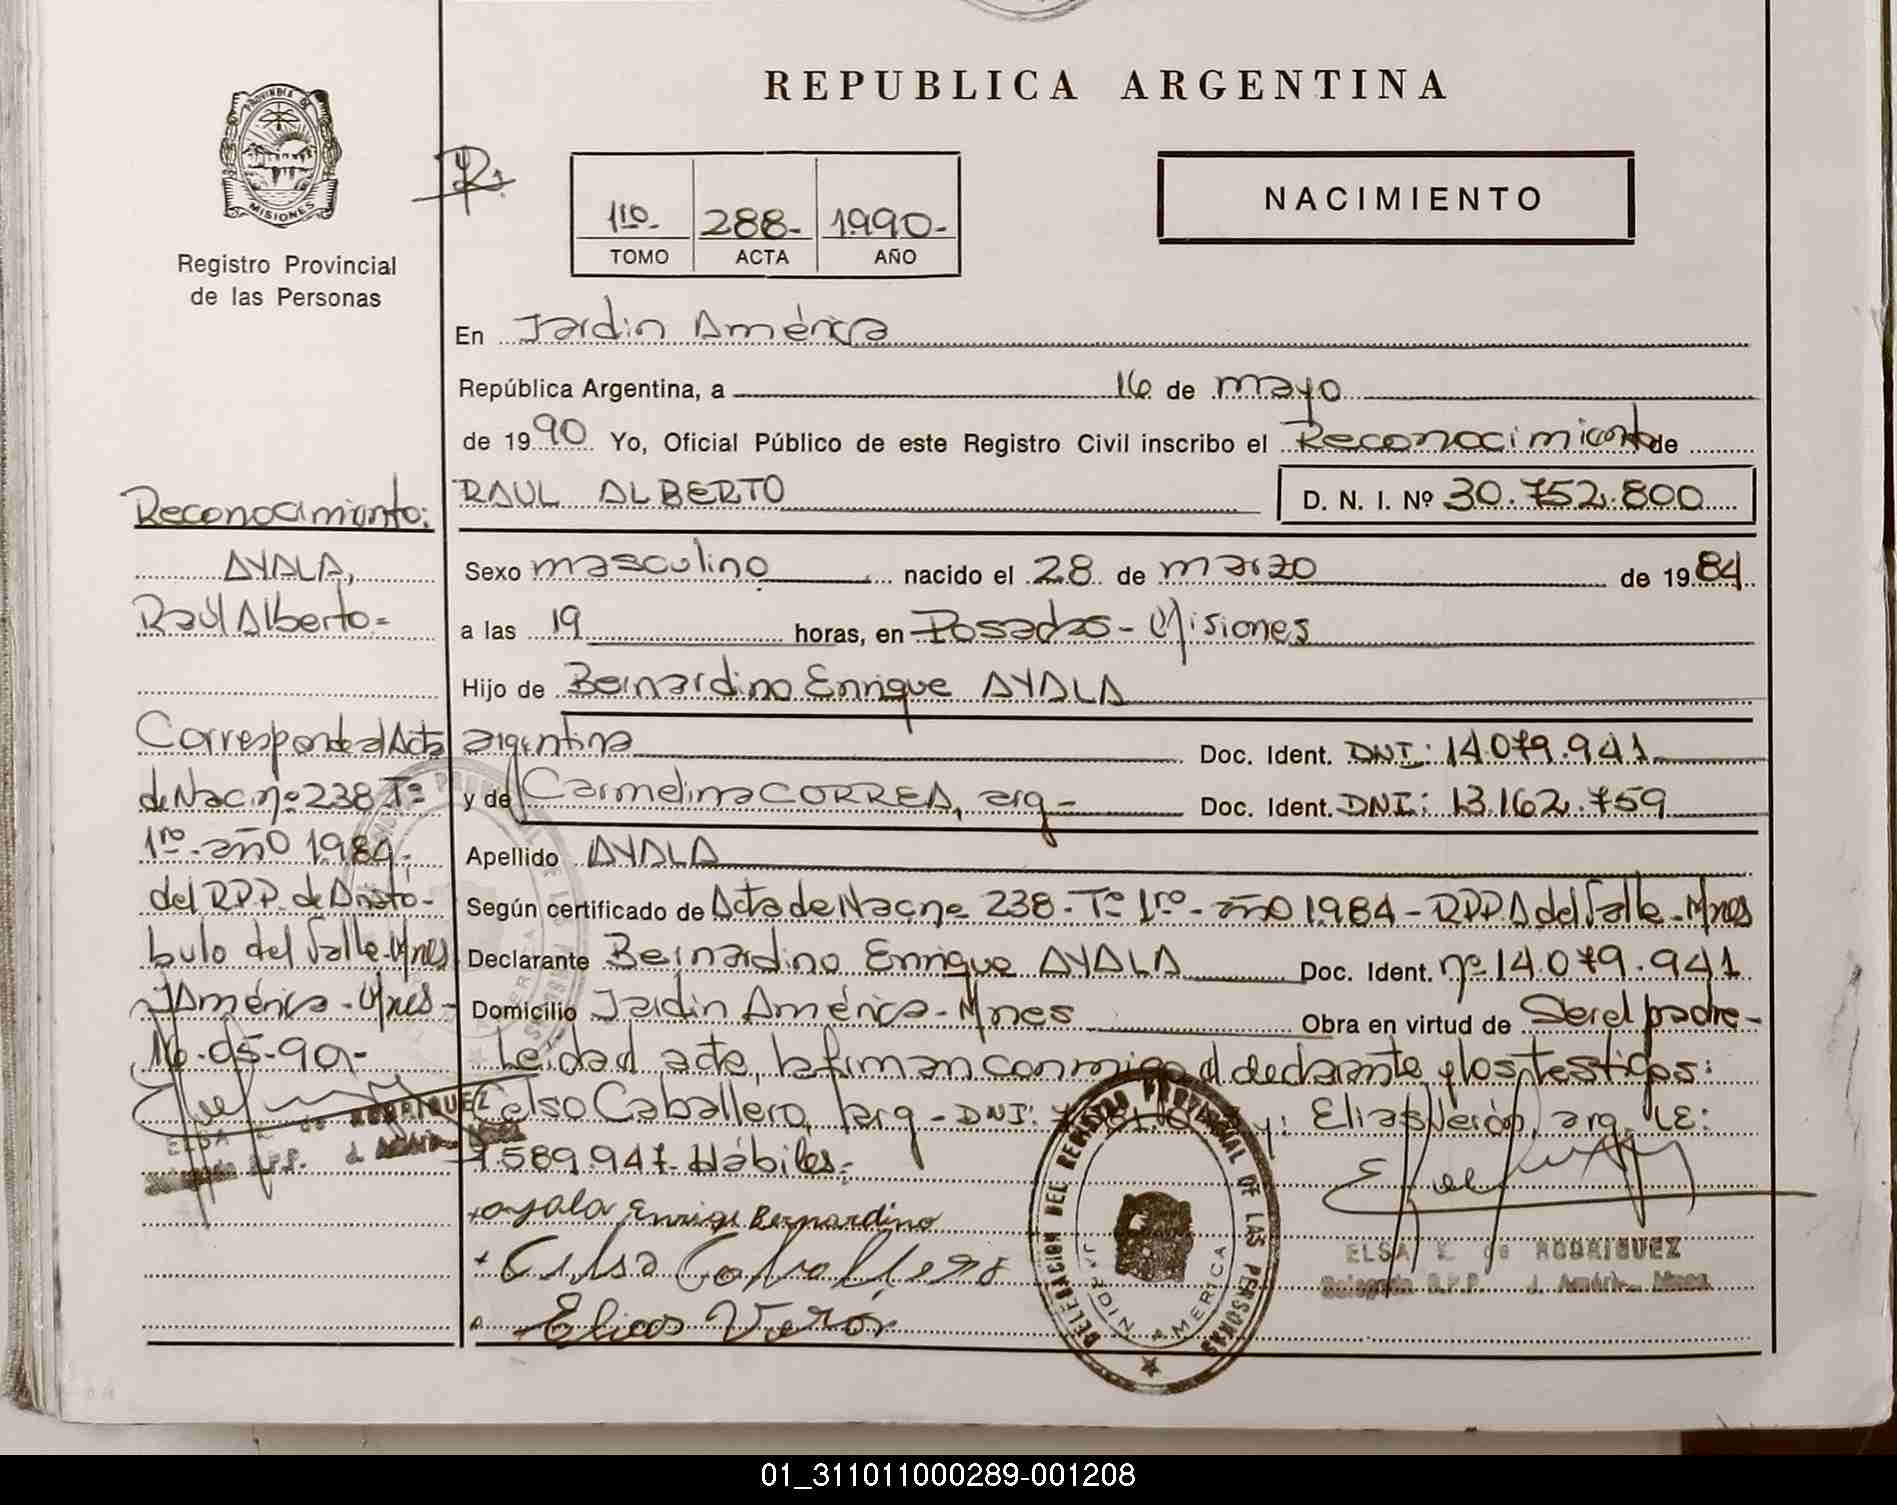 REPUBLICA ARGENTINA
PROVINCIA DE
MISIONES
Registro Provincial
de las Personas
1ro- 288- 1990-
TOMO ACTA AÑO
NACIMIENTO
En Jardin América
República Argentina, a 16 de mayo
de 1990 Yo, Oficial Público de este Registro Civil inscribo el Reconocimiento de
RAUL ALBERTO D. N. I. Nº 30.752.800
Sexo masculino nacido el 28 de marzo de 1984
a las 19 horas, en Posadas - Misiones
Hijo de Bernardino Enrique AYALA
argentina Doc. Ident. DNI: 14.079.941
y de Carmelina CORREA, arg- Doc. Ident. DNI: 13.162.759
Apellido AYALA
Según certificado de Acta de Nac nº 238-Tº 1ro- año 1984 - RPP A del Valle-Mnes
Declarante Bernardino Enrique AYALA Doc. Ident. nº 14.079.941
Domicilio Jardin América-Mnes Obra en virtud de Ser el padre-
Leida el acta, la firman conmigo el declarante y los testigos:
Celso Caballero, arg - DNI: y: Elias Verón, arg. LE:
7.589.947. Hábiles-
Reconocimiento:
AYALA,
Raúl Alberto=
Corresponde al Acta
de Nac nº 238 Tº
1ro- año 1984,
del R.P.P. de Aristó-
bulo del Valle-Mnes
J América-Mnes-
16-05-90-
ELSA de RODRIGUEZ
+ayala Enrique Bernardino
+ Celso Caballero
Elias Verón
DELEGACION DEL REGISTRO PROVINCIAL DE LAS PERSONAS
JARDIN AMERICA
ELSA E. de RODRIGUEZ
Delegada R.P.P. J. Améri- Mnes
01_311011000289-001208